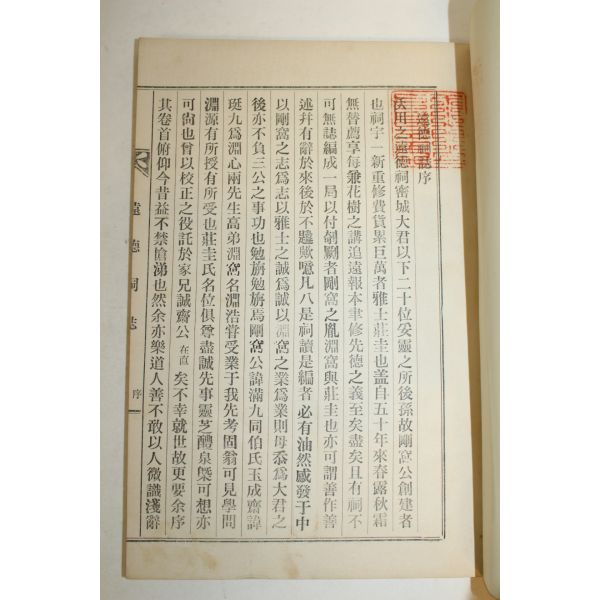 遠德祠誌序
沃田之遠德祠密城大君以下二十位妥靈之所後孫故剛窩公創建者
也祠宇一新重修費貨累巨萬者雅士莊圭也盖自五十年來春露秋霜
無替薦享每兼花樹之講追遠報本聿修先德之義至矣盡矣且有祠不
可無誌編成一局以付剞劂者剛窩之胤淵窩與莊圭也亦可謂善作善
述幷有辭於來後於不韙歟噫凡八是祠讀是編者必有油然感發于中
以剛窩之志爲志以雅士之誠爲誠以淵窩之業爲業則毋忝爲大君之
後亦不負三公之事功也勉旃勉旃焉剛窩公諱滿九同伯氏玉成齋諱
珽九爲淵心兩先生高弟淵窩名淵浩甞受業于我先考固翁可見學問
淵源有所授有所受也莊圭氏名位俱尊盡誠先事靈芝醴泉槩可想亦
可尙也曾以校正之役託於家兄誠齋公在直矣不幸就世故更要余序
其卷首俯仰今昔益不禁愴涕也然余亦樂道人善不敢以人微識淺辭
遠德祠誌
序